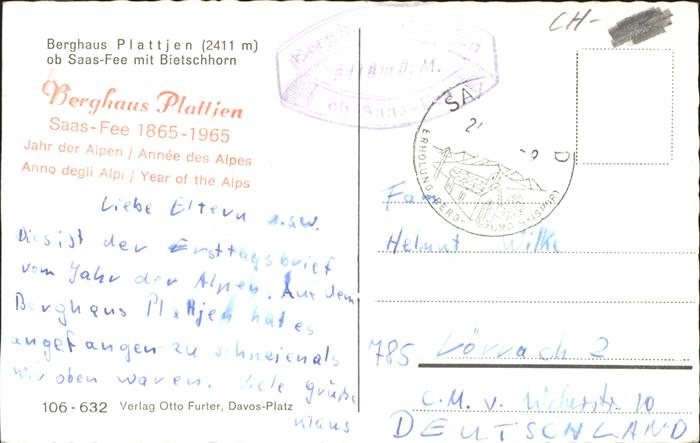 Berghaus Plattjen (2411 m)
ob Saas-Fee mit Bietschhorn
Berghaus Plattjen
Saas-Fee 1865-1965
Jahr der Alpen / Année des Alpes
Anno degli Alpi / Year of the Alps
Liebe Eltern u.s.w.
Dies ist der Ersttagsbrief
vom Jahr der Alpen. Auf dem
Berghaus Plattjen hat es
angefangen zu schneien als
wir oben waren. Viele Grüße
Klaus
106-632 Verlag Otto Furter, Davos-Platz
CH-
2411 m ü. M.
ob Saas-
SA
ERHOLUNG BERG- UND SPORT
Fam
Helmut Wilke
785 Lörrach 2
C.M. v. 10
DEUTSCHLAND